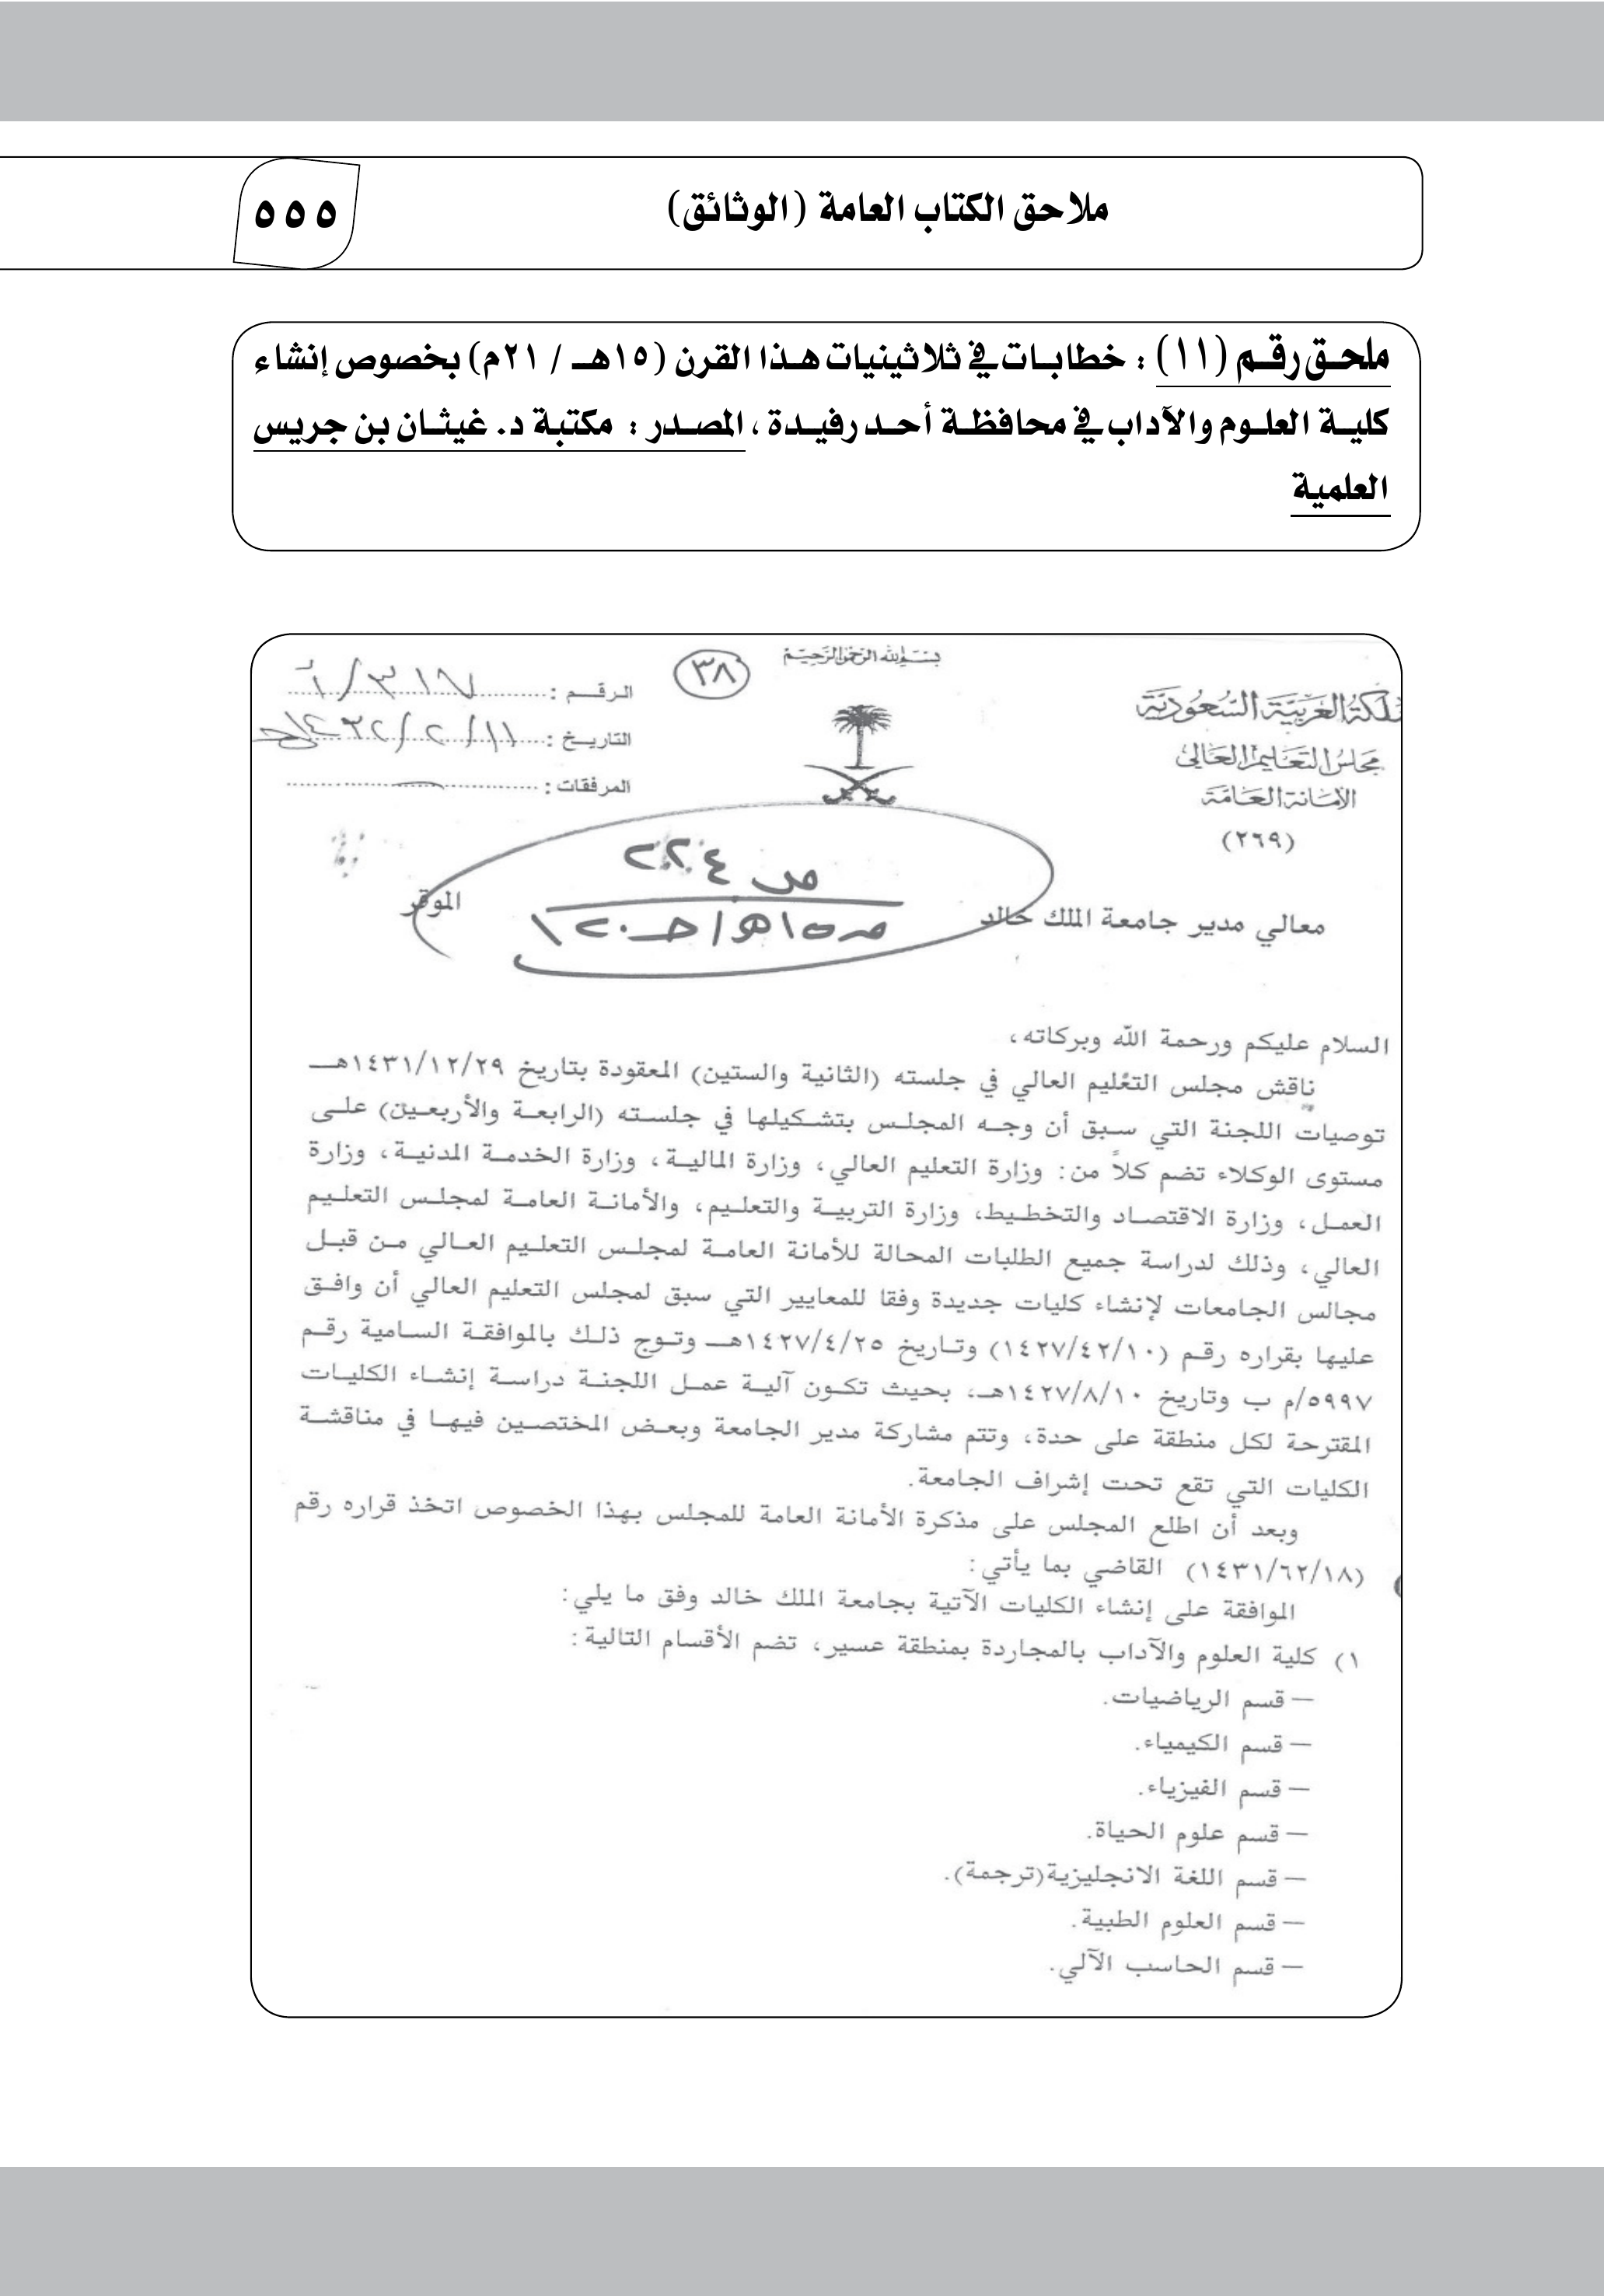 ملاحق الكتاب العامة (الوثائق)
٥٥٥
ملحق رقم (١١) : خطابات في ثلاثينيات هذا القرن (١٥هـ / ٢١م) بخصوص إنشاء
كلية العلوم والآداب في محافظة أحد رفيدة ، المصدر : مكتبة د. غيثان بن جريس
العلمية
بسم الله الرحمن الرحيم
المملكة العربية السعودية
مجلس التعليم العالي
الأمانة العامة
(٢٦٩)
٣٨
الرقـم :
التاريـخ : ١١/٢/١٤٣٢هـ
المرفقات :
معالي مدير جامعة الملك خالد الموقر
السلام عليكم ورحمة الله وبركاته،
ناقش مجلس التعليم العالي في جلسته (الثانية والستين) المعقودة بتاريخ ١٤٣١/١٢/٢٩هـ
توصيات اللجنة التي سبق أن وجه المجلس بتشكيلها في جلسته (الرابعة والأربعين) على
مستوى الوكلاء تضم كلاً من: وزارة التعليم العالي، وزارة المالية، وزارة الخدمة المدنية، وزارة
العمل، وزارة الاقتصاد والتخطيط، وزارة التربية والتعليم، والأمانة العامة لمجلس التعليم
العالي، وذلك لدراسة جميع الطلبات المحالة للأمانة العامة لمجلس التعليم العالي من قبل
مجالس الجامعات لإنشاء كليات جديدة وفقا للمعايير التي سبق لمجلس التعليم العالي أن وافق
عليها بقراره رقم (١٤٢٧/٤٢/١٠) وتاريخ ١٤٢٧/٤/٢٥هـ وتوج ذلك بالموافقة السامية رقم
٥٩٩٧/م ب وتاريخ ١٤٢٧/٨/١٠هـ، بحيث تكون آلية عمل اللجنة دراسة إنشاء الكليات
المقترحة لكل منطقة على حدة، وتتم مشاركة مدير الجامعة وبعض المختصين فيها في مناقشة
الكليات التي تقع تحت إشراف الجامعة.
وبعد أن اطلع المجلس على مذكرة الأمانة العامة للمجلس بهذا الخصوص اتخذ قراره رقم
(١٤٣١/٦٢/١٨) القاضي بما يأتي:
الموافقة على إنشاء الكليات الآتية بجامعة الملك خالد وفق ما يلي:
١) كلية العلوم والآداب بالمجاردة بمنطقة عسير، تضم الأقسام التالية:
– قسم الرياضيات.
– قسم الكيمياء.
– قسم الفيزياء.
– قسم علوم الحياة.
– قسم اللغة الانجليزية(ترجمة).
– قسم العلوم الطبية.
– قسم الحاسب الآلي.